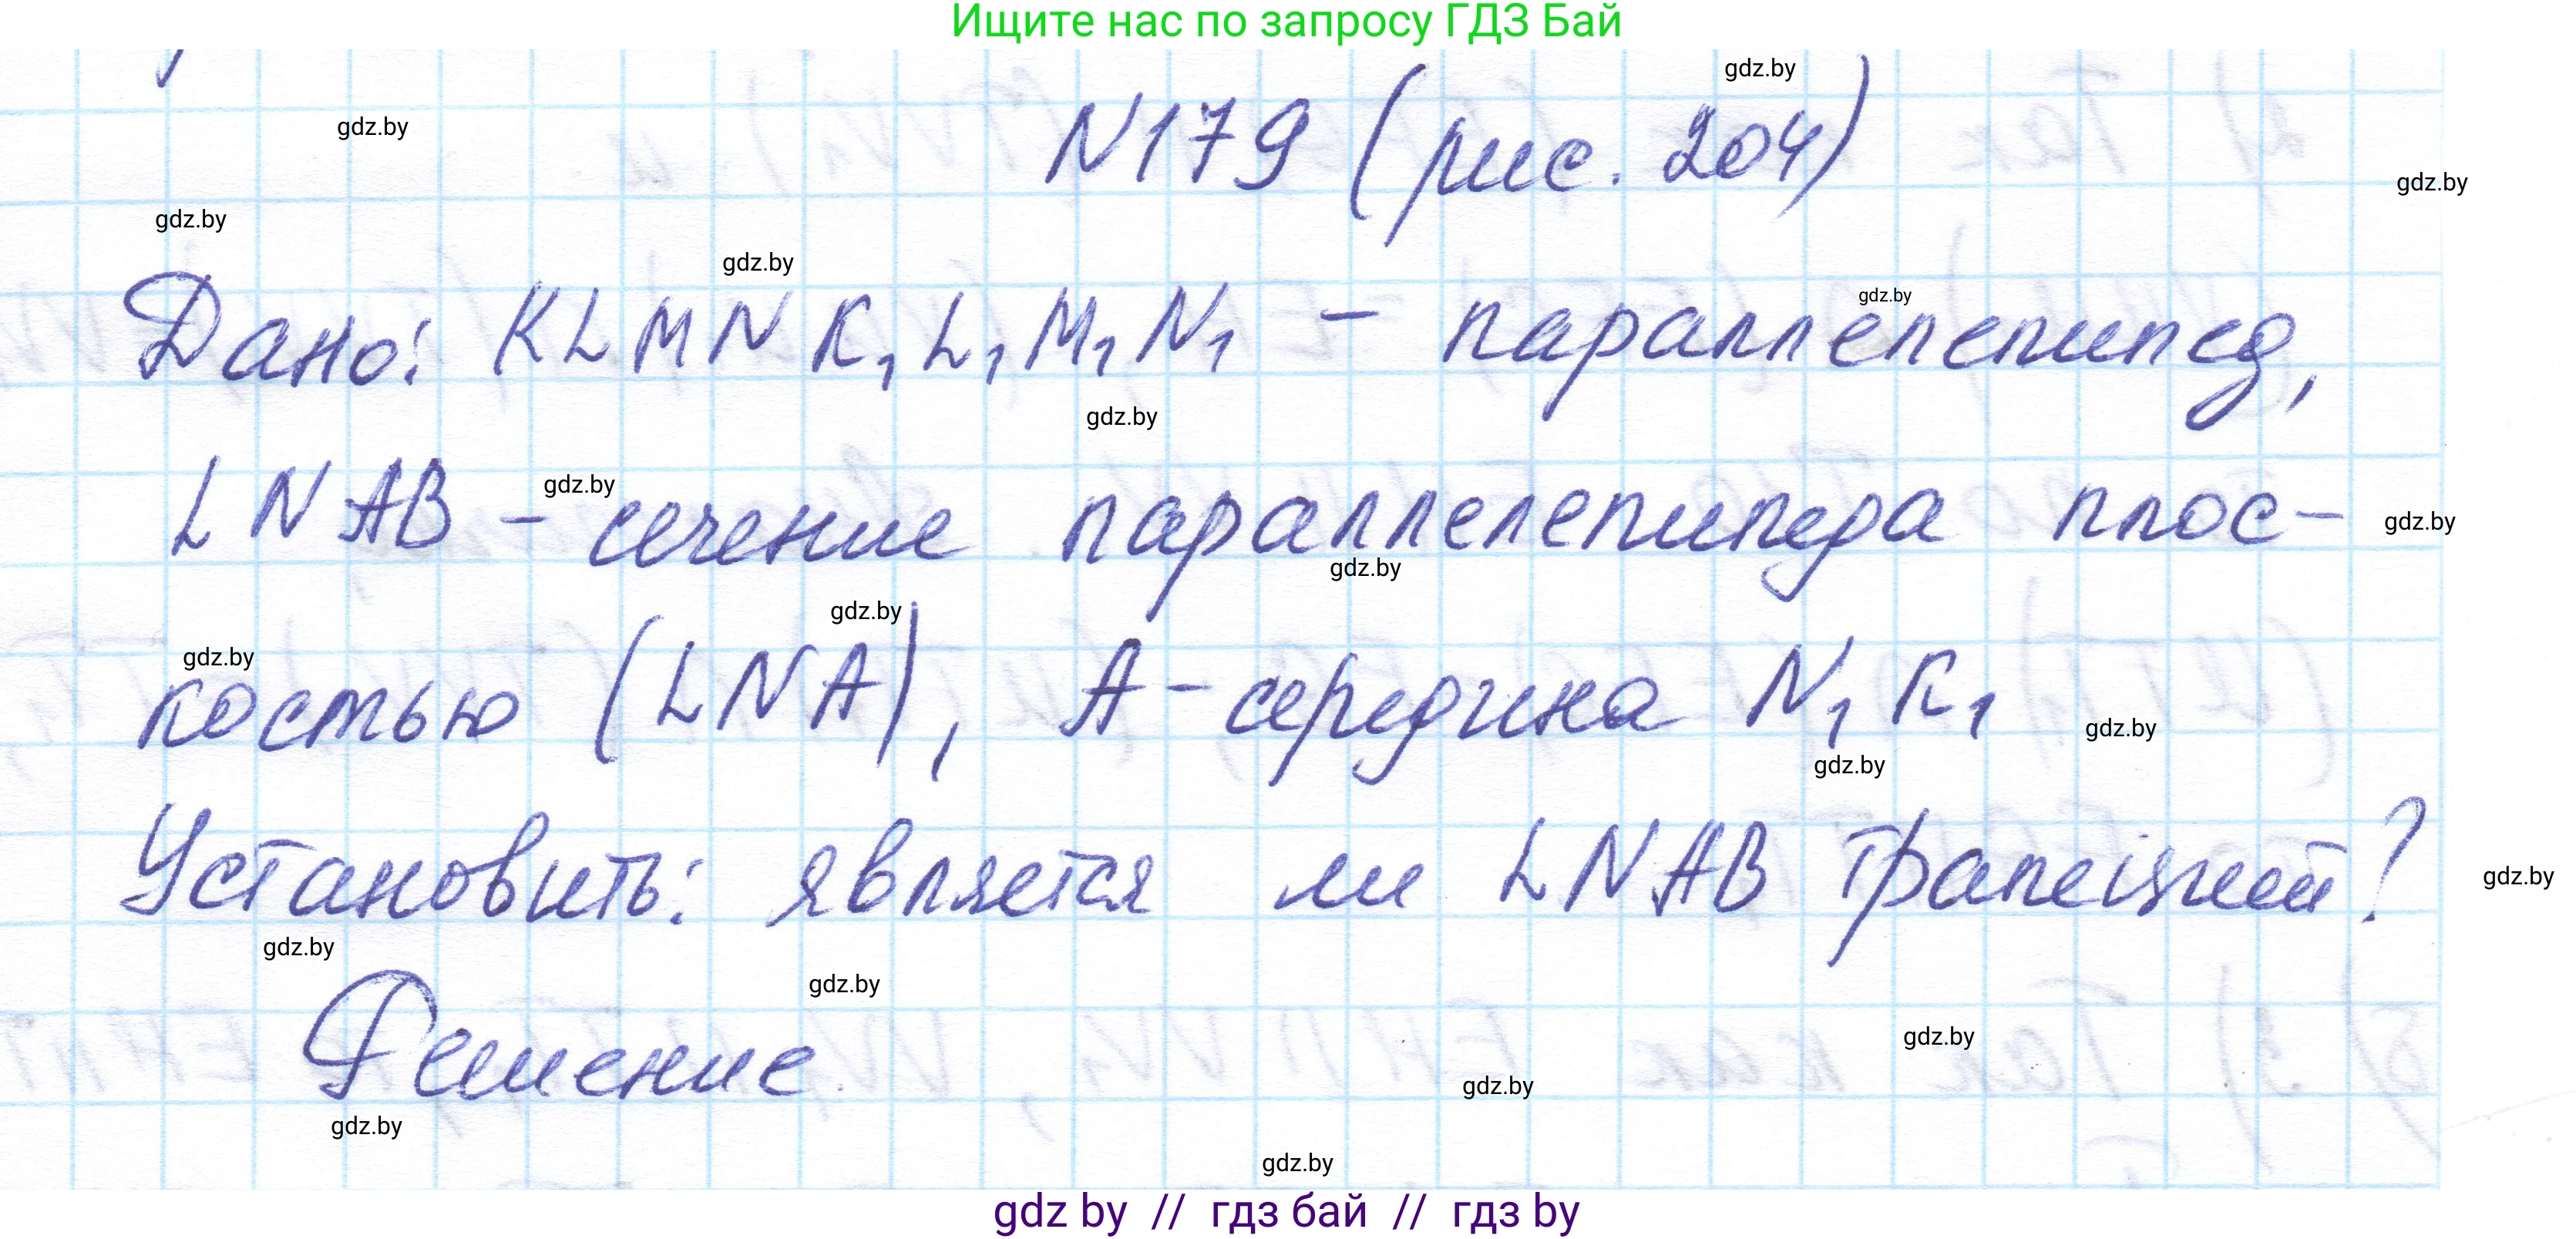 Ищите нас по запросу ГДЗ Бай
gdz.by
N179 (рис. 204)
gdz.by
gdz.by
gdz.by
gdz.by
Дано: KLMNK₁L₁M₁N₁ – параллелепипед,
gdz.by
gdz.by
LNAB – сечение параллелепипеда плос-
gdz.by
gdz.by
gdz.by
gdz.by
gdz.by
костью (LNA), A – середина N₁K₁
gdz.by
gdz.by
Установить: является ли LNAB трапецией?
gdz.by
gdz.by
gdz.by
Решение
gdz.by
gdz.by
gdz.by
gdz.by
gdz by // гдз бай // гдз by